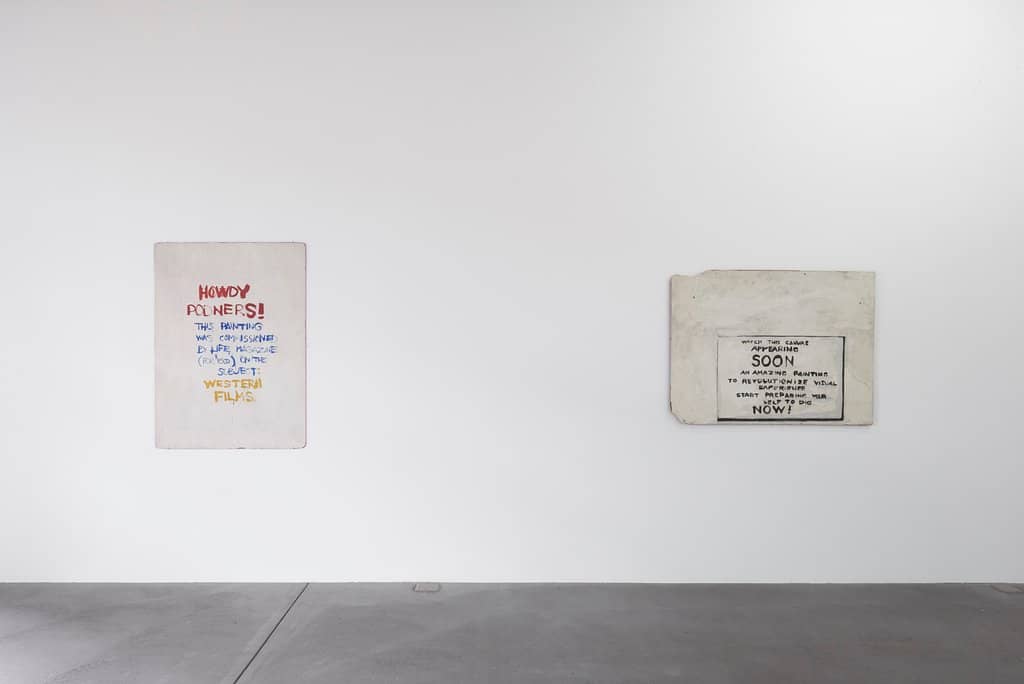 HOWDY
PODNERS!
THIS PAINTING
WAS COMMISSIONED
BY LIFE MAGAZINE
ON THE
SUBJECT:
WESTERN
FILMS.
WATCH THIS
APPEARING
SOON
AN AMAZING PAINTING
TO REVOLUTIONISE VISUAL
EXPERIENCE
START PREPARING YOUR
SELF TO DIG
NOW!